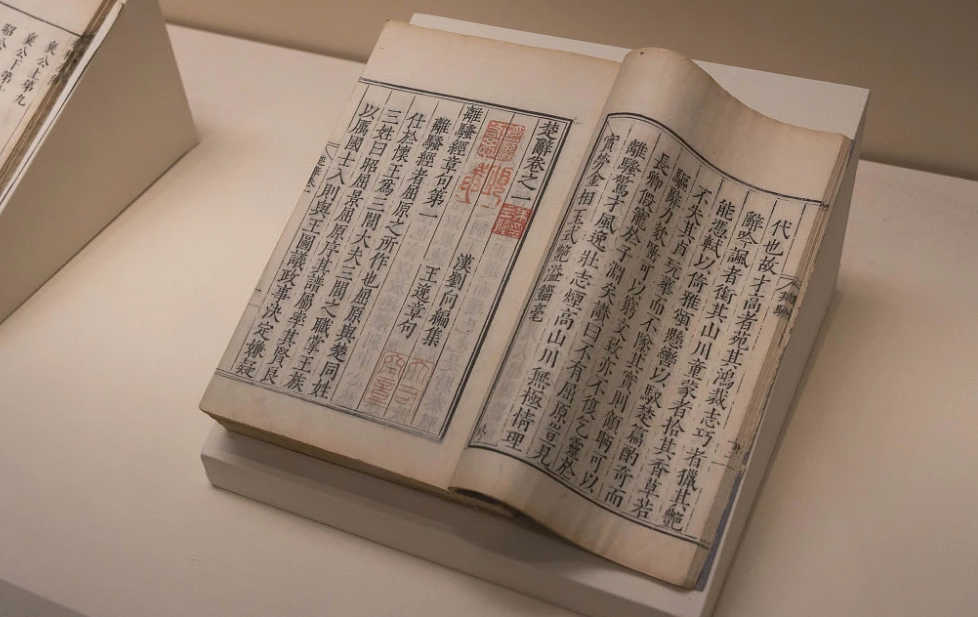 代也故才高者苑其鴻裁志巧者獵其艷
辭吟諷者銜其山川童蒙者拾其香草若
能憑軾以倚雅頌懸轡以馭楚篇酌奇而
不失其貞玩華而不墜其實則顧眄可以
驅辭力欬唾可以窮文致亦不復乞靈於
長卿假寵於子淵矣讚曰不有屈原豈見
離騷驚才風逸壯志煙高山川無極情理
實勞金相玉式艷溢錙毫
楚辭卷之一
漢劉向編集
王逸章句
離騷經章句第一
離騷經者屈原之所作也屈原與楚同姓
仕於懷王為三閭大夫三閭之職掌王族
三姓曰昭屈景屈原序其譜屬率其賢良
以厲國士入則與王圖議政事決定嫌疑
襄公上第九
襄公下第十
昭公